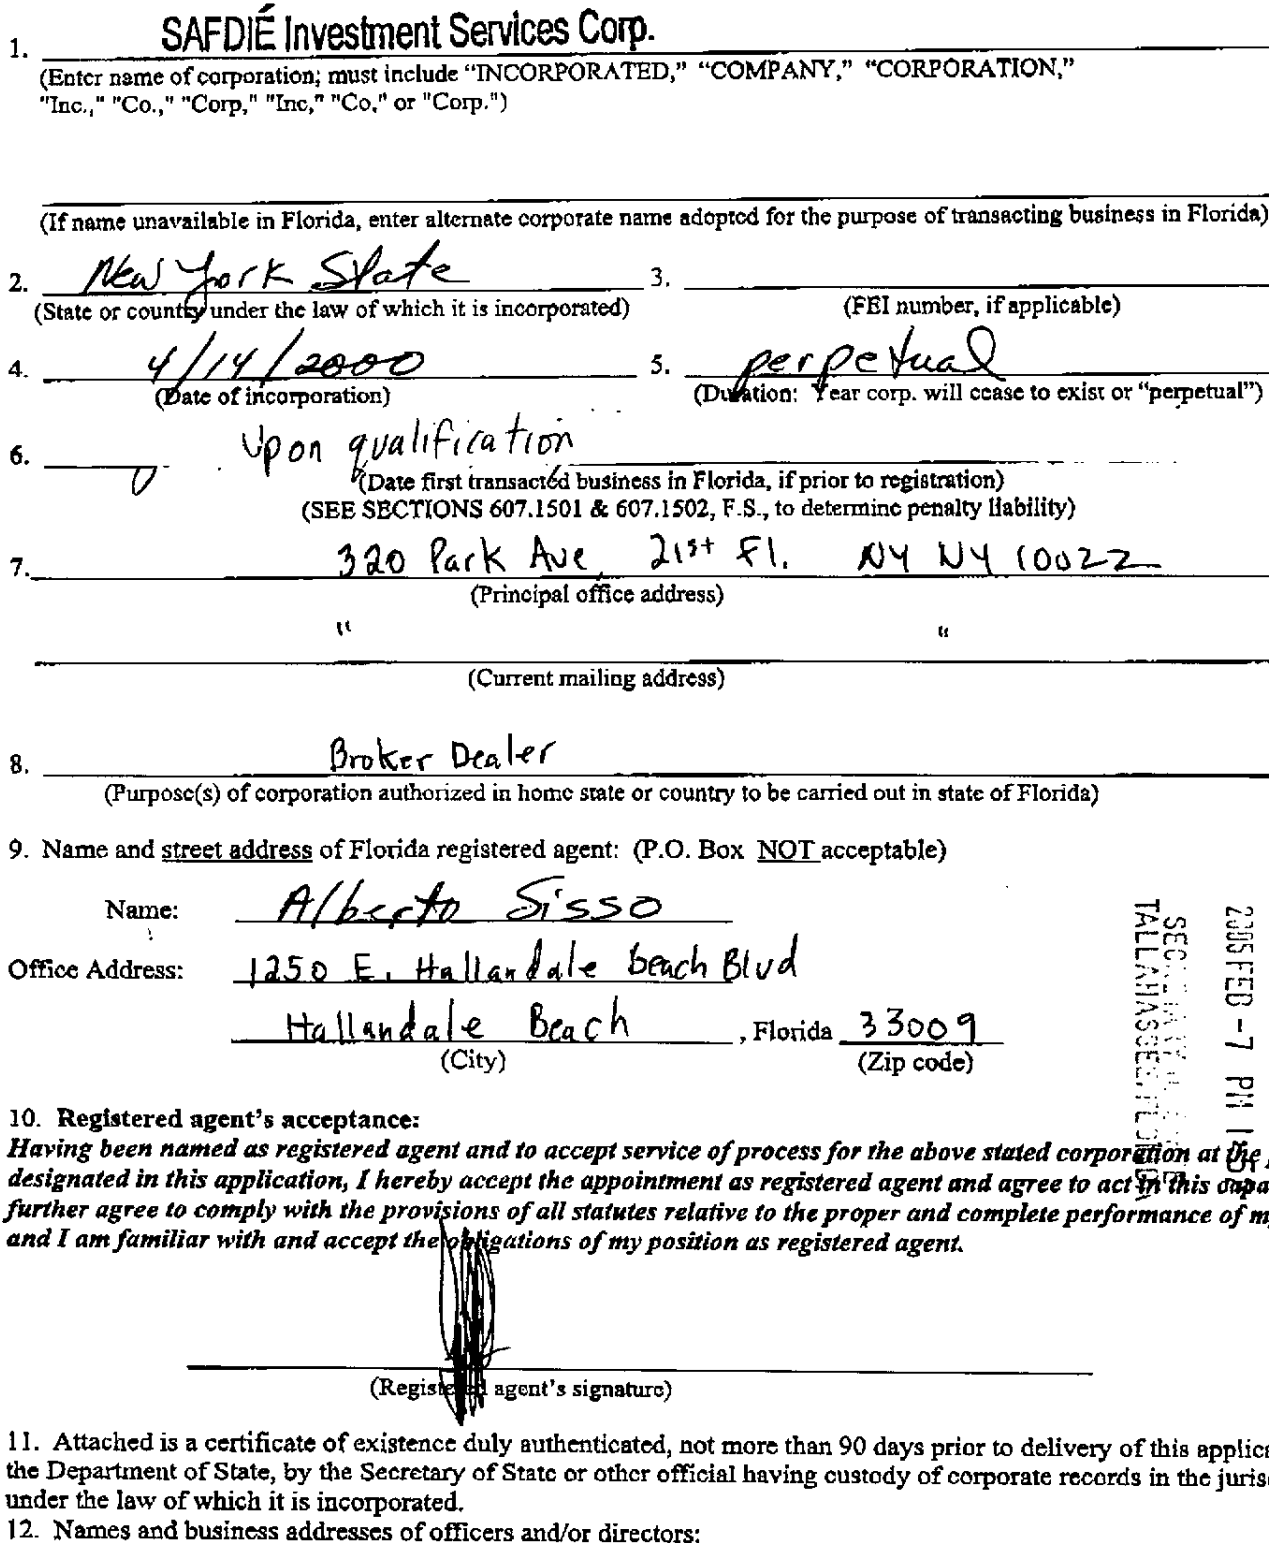 1. SAFDIÉ Investment Services Corp.
(Enter name of corporation; must include “INCORPORATED,” “COMPANY,” “CORPORATION,”
"Inc.," "Co.," "Corp," "Inc," "Co," or "Corp.")
(If name unavailable in Florida, enter alternate corporate name adopted for the purpose of transacting business in Florida)
2. New York State 3.
(State or country under the law of which it is incorporated) (FEI number, if applicable)
4. 4/14/2000 5. perpetual
(Date of incorporation) (Duration: Year corp. will cease to exist or “perpetual”)
6. Upon qualification
(Date first transacted business in Florida, if prior to registration)
(SEE SECTIONS 607.1501 & 607.1502, F.S., to determine penalty liability)
7. 320 Park Ave, 21st Fl. NY NY 10022
(Principal office address)
" "
(Current mailing address)
8. Broker Dealer
(Purpose(s) of corporation authorized in home state or country to be carried out in state of Florida)
9. Name and street address of Florida registered agent: (P.O. Box NOT acceptable)
Name: Alberto Sisso
Office Address: 1250 E. Hallandale beach Blvd
Hallandale Beach, Florida 33009
(City) (Zip code)
2005 FEB -7 PM
TALLAHASSEE, FLORIDA
10. Registered agent’s acceptance:
Having been named as registered agent and to accept service of process for the above stated corporation at the
designated in this application, I hereby accept the appointment as registered agent and agree to act in this capa
further agree to comply with the provisions of all statutes relative to the proper and complete performance of m
and I am familiar with and accept the obligations of my position as registered agent.
(Registered agent’s signature)
11. Attached is a certificate of existence duly authenticated, not more than 90 days prior to delivery of this applica
the Department of State, by the Secretary of State or other official having custody of corporate records in the juris
under the law of which it is incorporated.
12. Names and business addresses of officers and/or directors: